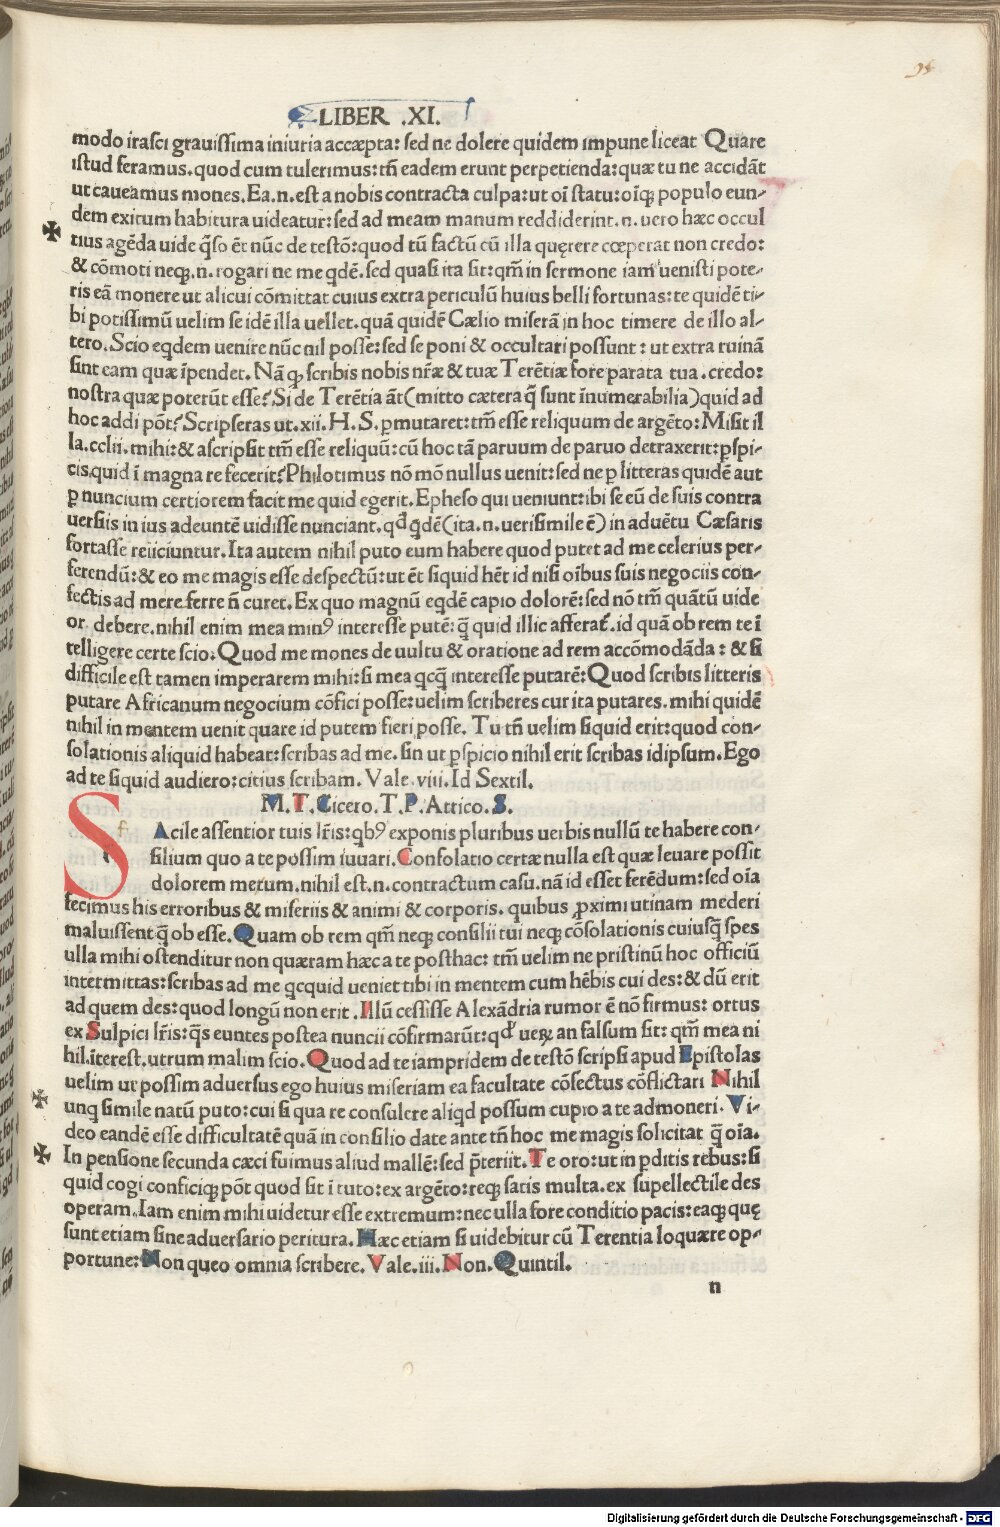 98
LIBER .XI.
modo irasci grauissima iniuria accæpta: sed ne dolere quidem impune liceat Quare
istud feramus. quod cum tulerimus: tñ eadem erunt perpetienda: quæ tu ne accidāt
ut caueamus mones. Ea .n. est a nobis contracta culpa: ut oī statu: oīq; populo eun-
dem exitum habitura uideatur: sed ad meam manum reddiderint .n. uero hæc occul
tius agēda uide q̄so ēt nūc de testō: quod tū factū cū illa quęrere cœperat non credo:
& cōmoti neq; .n. rogari ne me qdē. sed quasi ita sit: qm̄ in sermone iam uenisti pote-
ris eā monere ut alicui cōmittat cuius extra periculū huius belli fortunas: te quidē ti-
bi potissimū uelim se idē illa uellet. quā quidē Cælio miserā in hoc timere de illo al-
tero. Scio eqdem uenire nūc nil posse: sed se poni & occultari possunt: ut extra ruinā
sint eam quæ īpendet. Nā q; scribis nobis nr̄æ & tuæ Terētiæ fore parata tua. credo:
nostra quæ poterūt esse? Si de Terētia āt (mitto cætera q̄ sunt īnumerabilia) quid ad
hoc addi pōt? Scripseras ut .xii. H. S. ꝑmutaret: tm̄ esse reliquum de argēto: Misit il
la. cclii. mihi: & ascripsit tm̄ esse reliquū: cū hoc tā paruum de paruo detraxerit: ꝑspi-
cis. quid ī magna re fecerit? Philotimus nō mō nullus uenit: sed ne ꝑ litteras quidē aut
ꝑ nuncium certiorem facit me quid egerit. Epheso qui ueniunt: ibi se eū de suis contra
uersiis in ius adeuntē uidisse nunciant. qd qdē (ita .n. uerisimile ē) in aduētu Cæsaris
fortasse reiiciuntur. Ita autem nihil puto eum habere quod putet ad me celerius per-
ferendū: & eo me magis esse despectū: ut ēt siquid hēt id nisi oībus suis negociis con-
fectis ad me re ferre ñ curet. Ex quo magnū eqdē capio dolorē: sed nō tm̄ quātū uide
or debere. nihil enim mea minꝰ interesse putē: q̄ quid illic afferat̄. id quā ob rem te ī
telligere certe scio. Quod me mones de uultu & oratione ad rem accōmodāda: & si
difficile est tamen imperarem mihi: si mea qcq̄ interesse putarē: Quod scribis litteris
putare Africanum negocium cōfici posse: uelim scriberes cur ita putares. mihi quidē
nihil in mentem uenit quare id putem fieri posse. Tu tñ uelim siquid erit: quod con-
solationis aliquid habeat: scribas ad me. sin ut ꝑspicio nihil erit scribas id ipsum. Ego
ad te siquid audiero: citius scribam. Vale .viii. Id Sextil.
M. T. Cicero. T. P. Attico. S.
f
Acile assentior tuis lr̄is: qbꝰ exponis pluribus uerbis nullū te habere con-
silium quo a te possim iuuari. Consolatio certæ nulla est quæ leuare possit
dolorem metum. nihil est .n. contractum casu. nā id esset ferēdum: sed oīa
fecimus his erroribus & miseriis & animi & corporis. quibus ꝓximi utinam mederi
maluissent q̄ ob esse. Quam ob rem qm̄ neq; consilii tui neq; cōsolationis cuiusq̄ spes
ulla mihi ostenditur non quæram hæc a te posthac: tm̄ uelim ne pristinū hoc officiū
intermittas: scribas ad me qcquid ueniet tibi in mentem cum hēbis cui des: & dū erit
ad quem des: quod longū non erit. Illū cessisse Alexādria rumor ē nō firmus: ortus
ex Sulpici lr̄is: q̄s euntes postea nuncii cōfirmarūt: qd ueꝝ an falsum sit: qm̄ mea ni
hil. īterest. utrum malim scio. Quod ad te iampridem de testō scripsi apud Epistolas
uelim ut possim aduersus ego huius miseriam ea facultate cōfectus cōflictari Nihil
unq simile natū puto: cui si qua re consulere aliqd possum cupio a te admoneri. Vi-
deo eandē esse difficultatē quā in consilio date ante tñ hoc me magis solicitat q̄ oīa.
In pensione secunda cæci fuimus aliud mallē: sed p̄teriit. Te oro: ut in ꝑditis rebus: si
quid cogi conficiq; pōt quod sit ī tuto: ex argēto: req; satis multa. ex supellectile des
operam. Iam enim mihi uidetur esse extremum: nec ulla fore conditio pacis: eaq; quę
sunt etiam sine aduersario peritura. Hæc etiam si uidebitur cū Terentia loquære op-
portune: Non queo omnia scribere. Vale .iii. Non. Quintil.
n
Digitalisierung gefördert durch die Deutsche Forschungsgemeinschaft - DFG